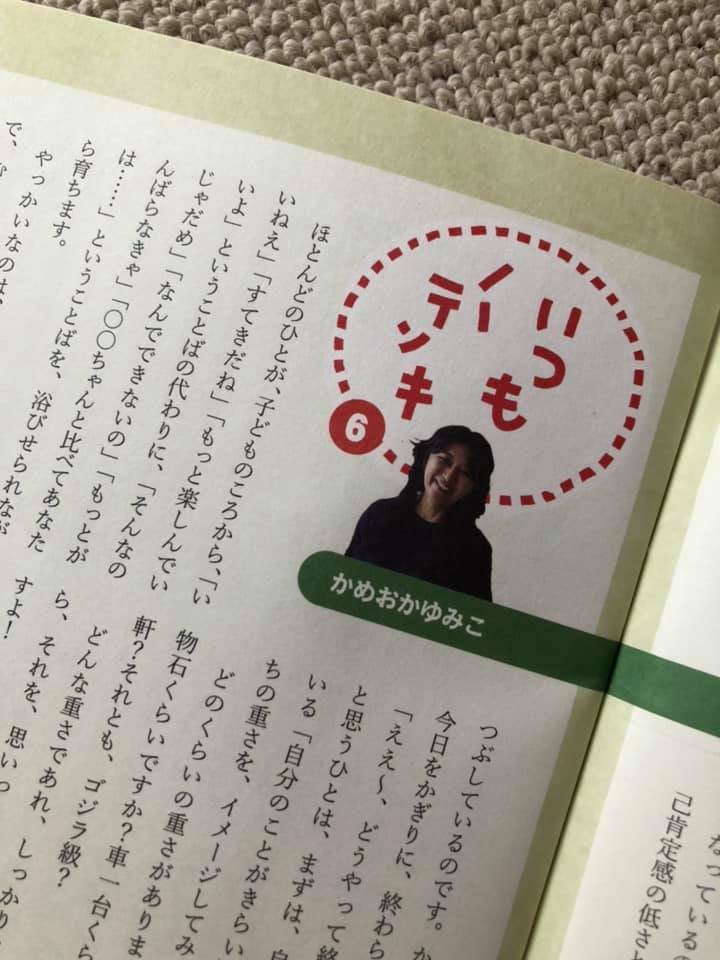 いつも
ノーテンキ
6
かめおかゆみこ
ほとんどのひとが、子どものころから、「い
いねえ」「すてきだね」「もっと楽しんでい
いよ」ということばの代わりに、「そんなの
じゃだめ」「なんでできないの」「もっとが
んばらなきゃ」「〇〇ちゃんと比べてあなた
は……」ということばを、浴びせられなが
ら育ちます。
やっかいなのは、
で、
つぶしているのです。
今日をかぎりに、終わら
「ええ〜、どうやって終
と思うひとは、まずは、自
いる「自分のことがきらい
ちの重さを、イメージしてみ
どのくらいの重さがありま
物石くらいですか？車一台くら
軒？それとも、ゴジラ級？
どんな重さであれ、しっかり
ら、それを、思いっ
すよ！
なっているの
己肯定感の低さと